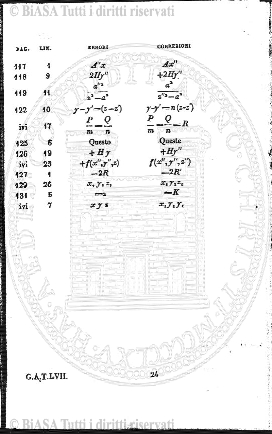 © BiASA Tutti i diritti riservati
PAG. LIN. ERRORI CORREZIONI
117 1 A'x Ax''
118 9 2Hy'' +2Hy''
119 11 a'²/(z²—a²) a²/(z'²—a²)
122 10 y—y'—(z—z') y—y'—n(z—z')
ivi 17 P/m — Q/n P/m — Q/n — R
125 6 Questo Queste
126 19 +Hy +Hy''
ivi 23 +f(x'',y'',z) f(x'',y'',z'')
127 1 —2R —2R'
129 26 x, y, z, x, y, z,
131 5 —K
ivi 7 x y z x, y, y,
G.A.T.LVII. 24
© BiASA Tutti i diritti riservati